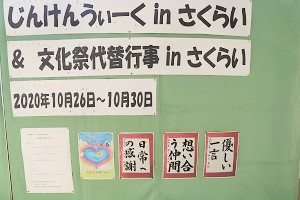 じんけんうぃーく in さくらい
& 文化祭代替行事 in さくらい
2020年10月26日~10月30日
日常への感謝
想い合う仲間
優しい一言